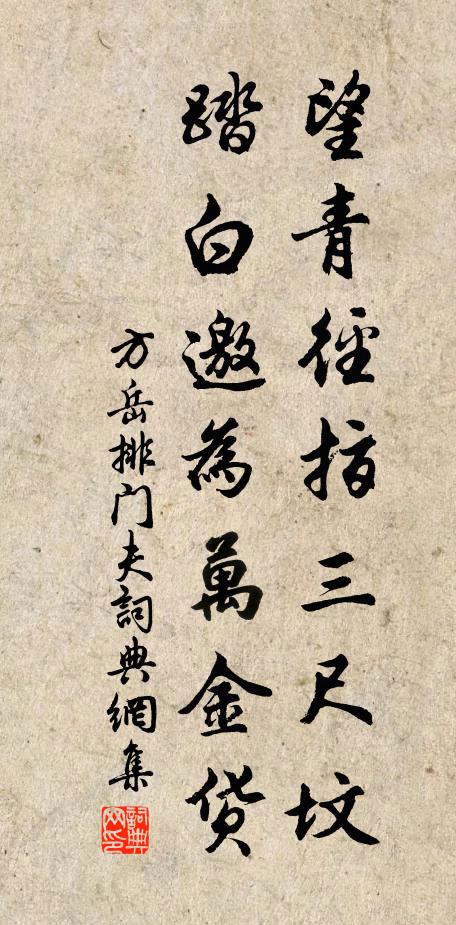 望青徑指三尺墳
踏白邀為萬金貨
方岳排門夫詞典網集
詞典网印